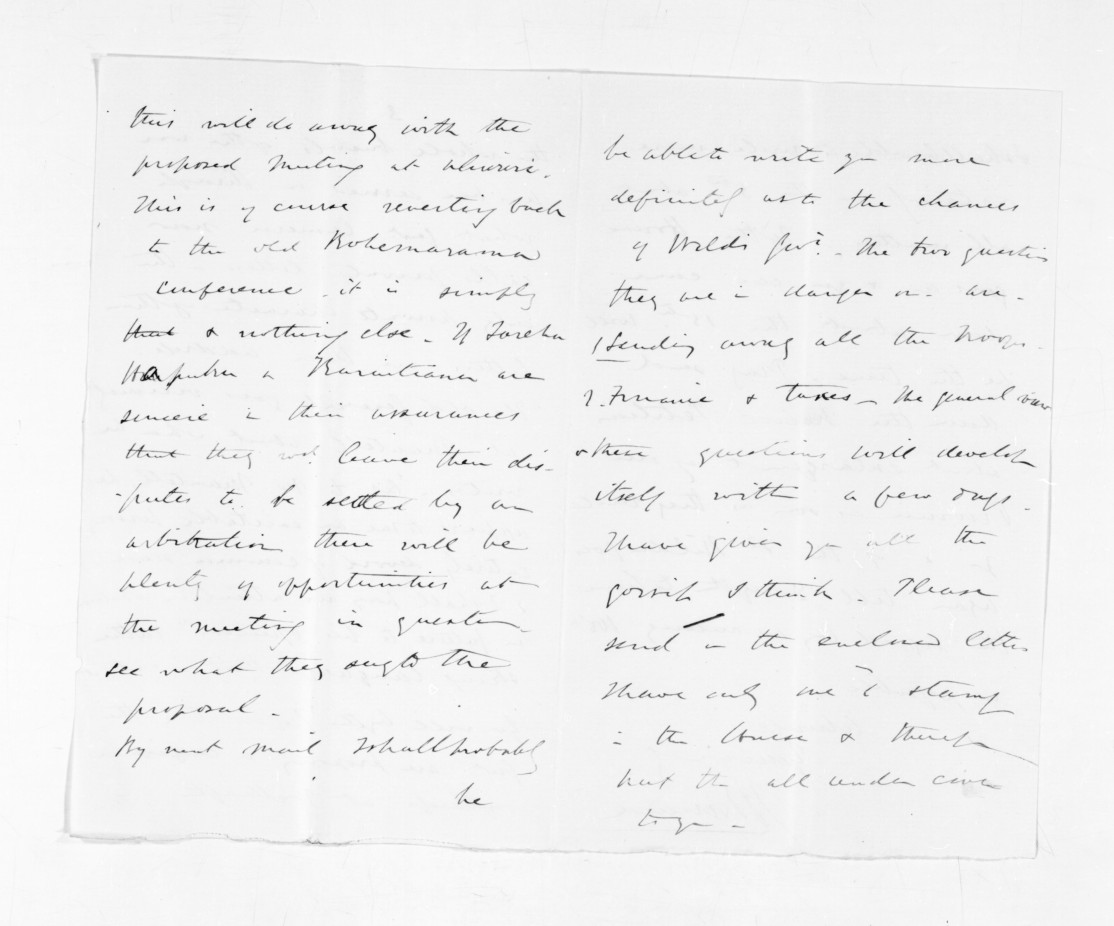 this will do away with the
proposed meeting at
This is of course reverting back
to the old Kohimarama
conference. it is simply
that & nothing else. If Tareha
Hapuku & Karaitiana are
sincere in their assurances
that they wd. leave their dis-
-putes to be settled by an
arbitration there will be
plenty of opportunities at
the meeting in question
see what they say to the
proposal.
By next mail I shall probably
be
be able to write you more
definitely as to the chances
of Weld's Govt. - The two questions
they are in danger on - are -
1 Sending away all the troops.
2. Finance & taxes - The general view
these questions will develop
itself with a few days.
I have given you all the
gossip I think. Please
send on the enclosed letters
I have only one stamp
in the House & therefore
put them all under cover
to you -